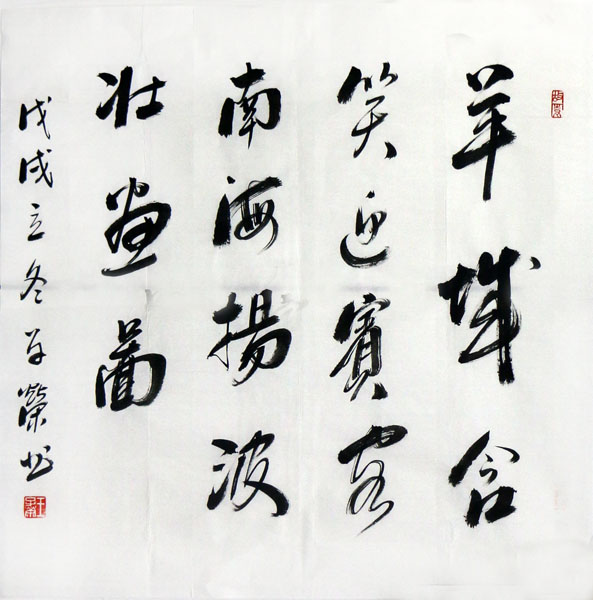 羊城含
笑迎賓客
南海揚波
壮畫圖
戊戌立冬子榮书